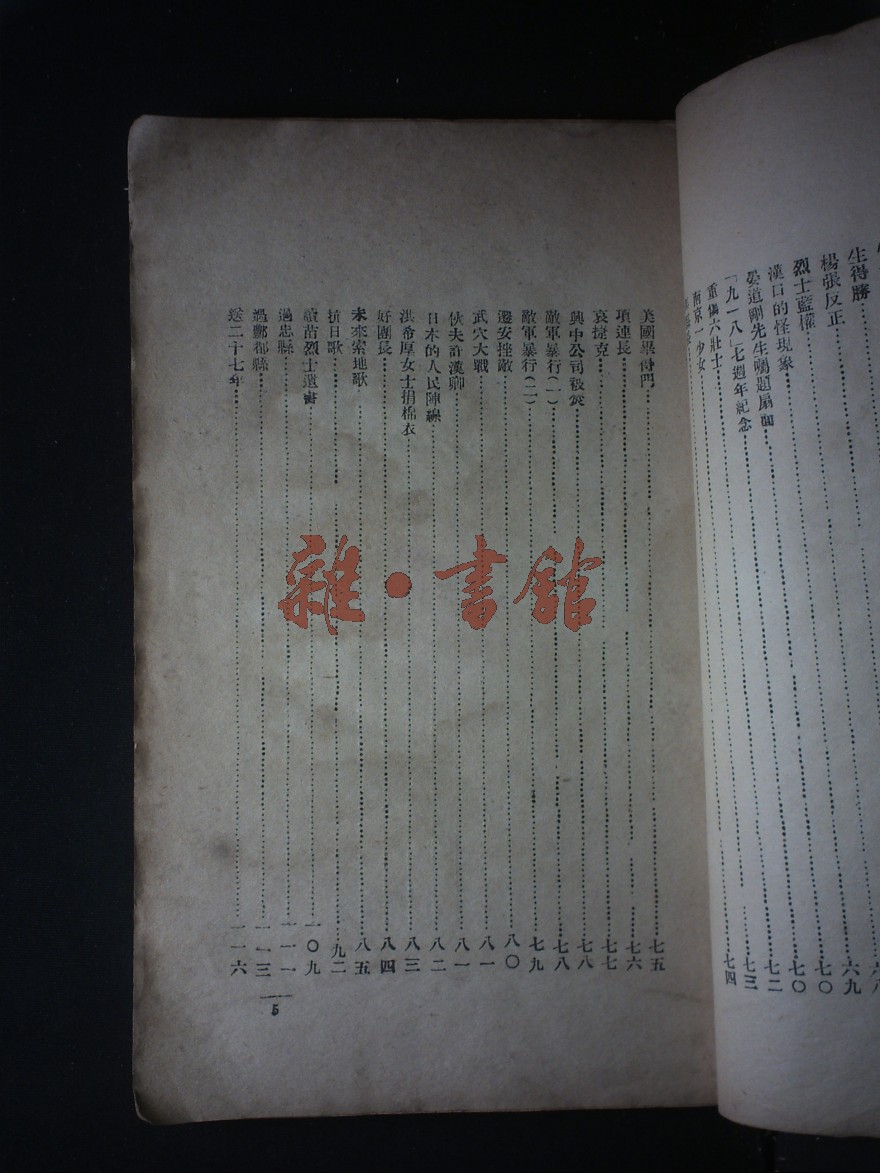 六八
生得勝……六九
楊張反正……七〇
烈士藍權……七〇
漢口的怪現象……七二
晏道剛先生囑題扇面……七三
「九一八」七週年紀念……七四
重儁六壯士……
南京一少女……
美國畢得門……七五
項連長……七六
哀捷克……七七
興中公司被焚……七八
敵軍暴行(一)……七八
敵軍暴行(二)……七九
遷安挫敵……八〇
武穴大戰……八一
伙夫許漢卿……八一
日本的人民陣線……八二
洪希厚女士捐棉衣……八三
好團長……八四
未來索地歌……八五
抗日歌……九二
讀苗烈士遺書……一〇九
過忠縣……一一一
過酆都縣……一一三
送二十七年……一一六
5
雜•書館